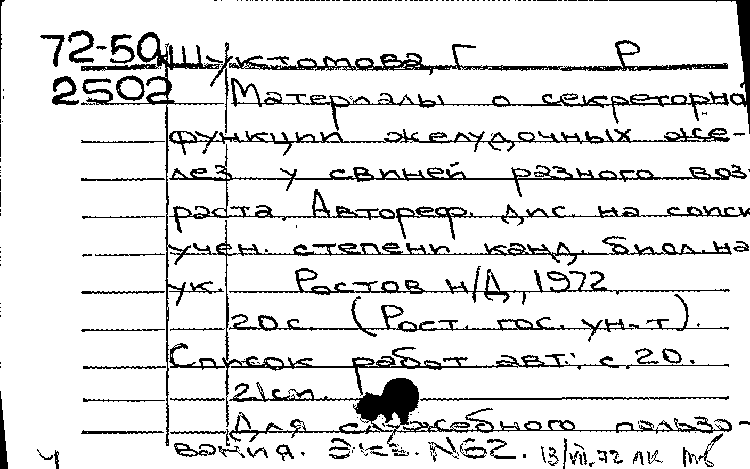 72-50 Шуктомова, Г Р
2502 Материалы о секреторной
функции желудочных же-
лез у свиней разного воз-
раста. Автореф. дис. на соиск
учен. степени канд. биол. на
ук. Ростов н/Д, 1972.
20 с. (Рост. гос. ун-т).
Список работ авт.: с. 20.
21 сл.
Для служебного пользо-
вания. Экз. №62. 13/VII.72 ЛК